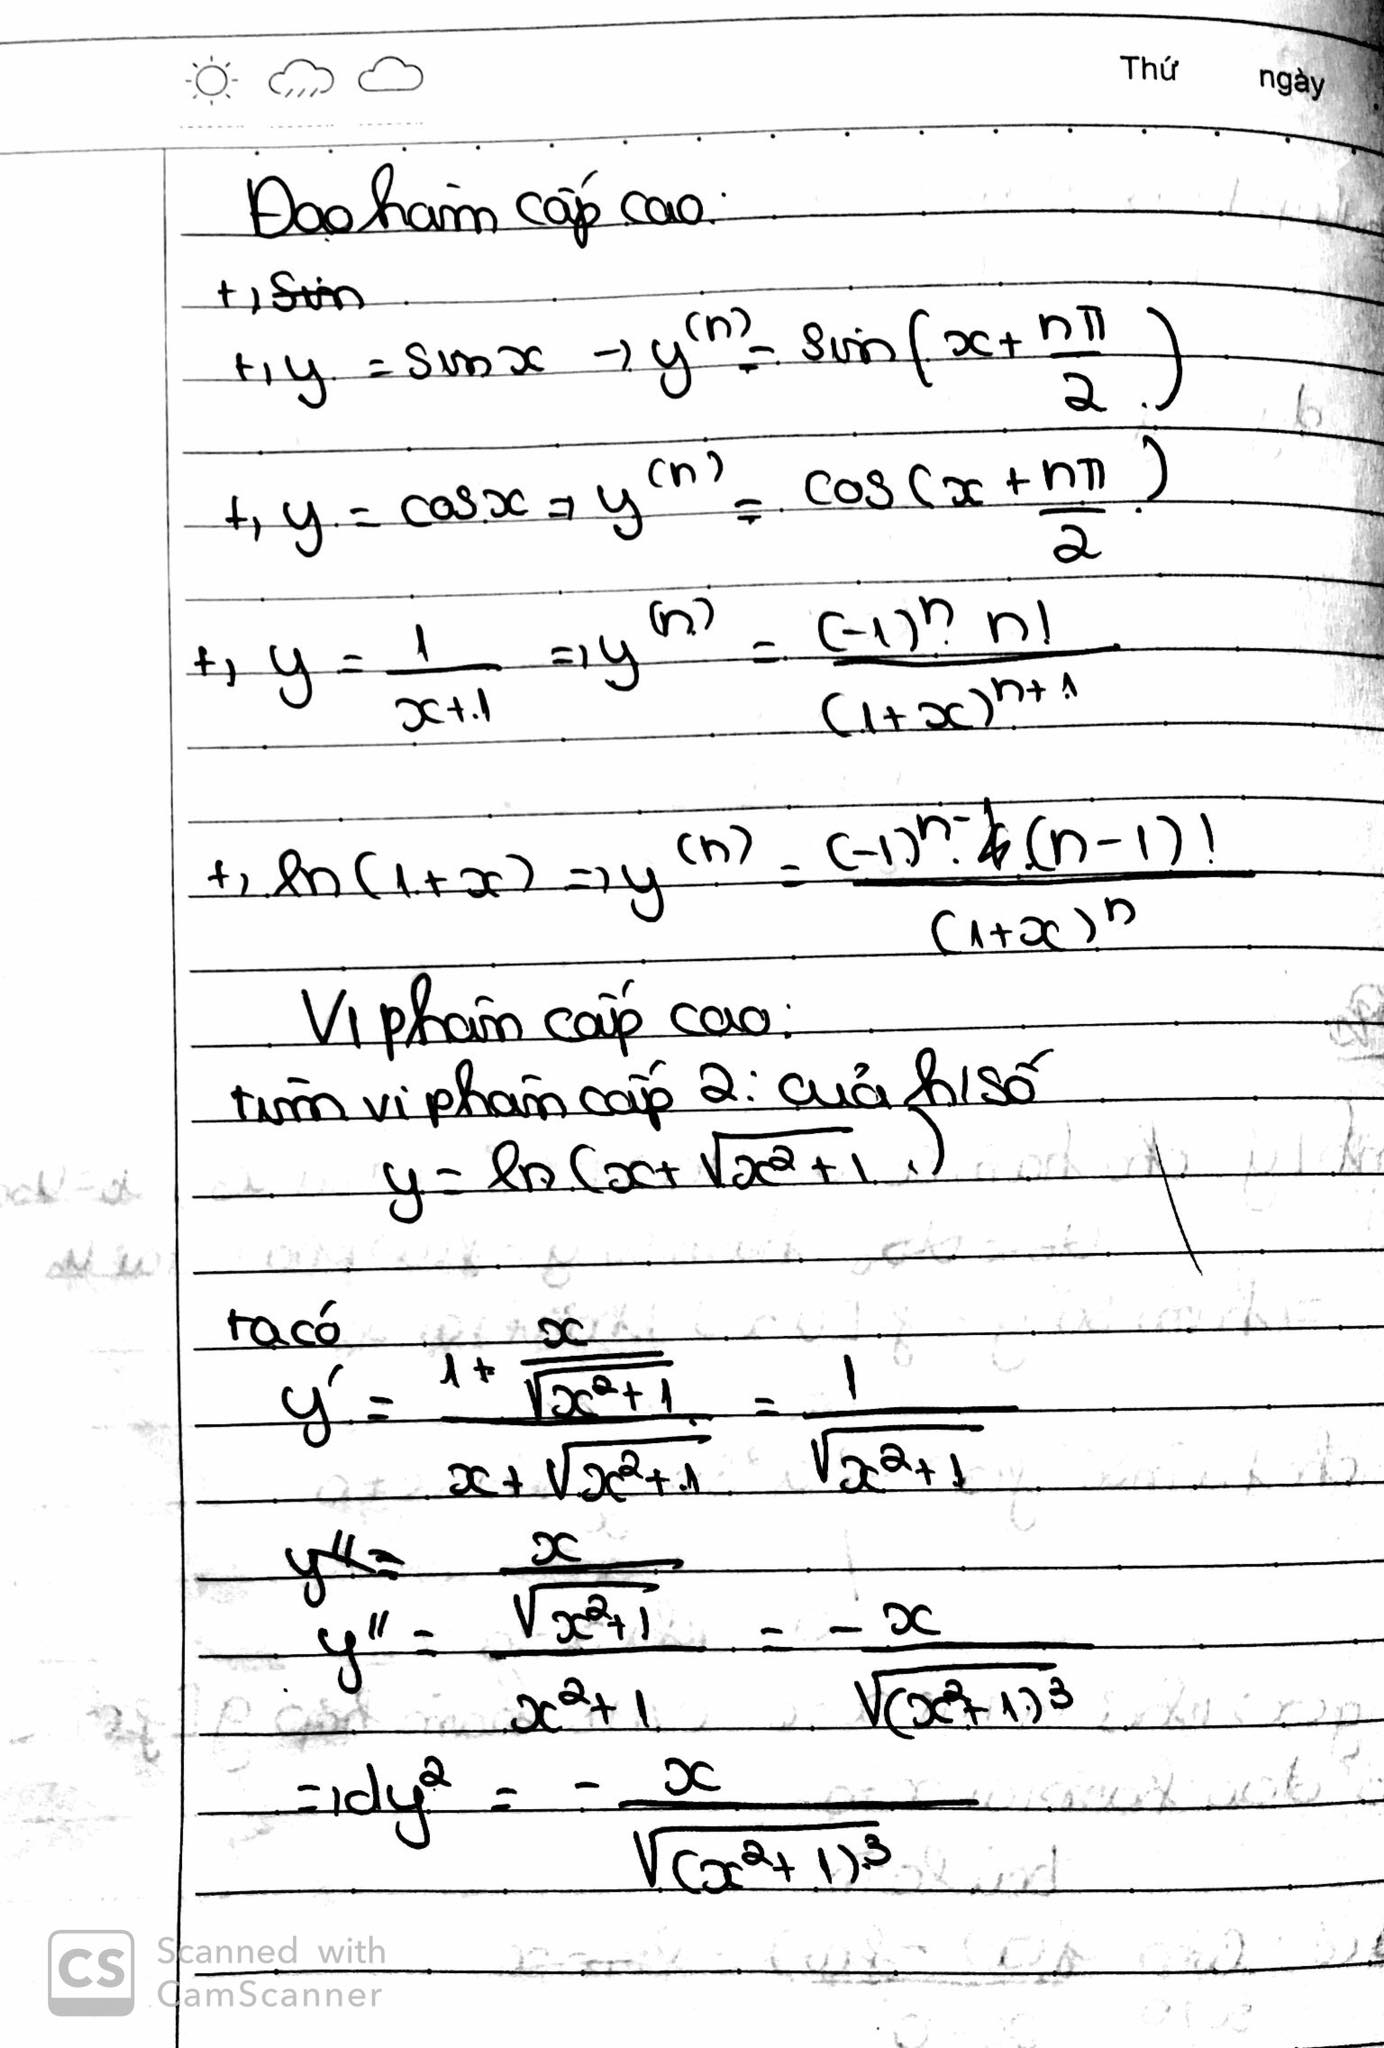 Thứ ngày
Đạo hàm cấp cao:
+, Sin
+, y = sin x → y^(n) = sin(x + nπ/2)
+, y = cos x ⇒ y^(n) = cos(x + nπ/2)
+, y = 1/(x+1) ⇒ y^(n) = (-1)^n. n!/(1+x)^(n+1)
+, ln(1+x) ⇒ y^(n) = (-1)^(n-1).(n-1)!/(1+x)^n
Vi phân cấp cao:
tìm vi phân cấp 2: của h/số
y = ln(x + √(x²+1))
ta có
y' = (1 + x/√(x²+1))/(x + √(x²+1)) = 1/√(x²+1)
y'' =
y'' = (x/√(x²+1))/(x²+1) = - x/√((x²+1)³)
⇒ dy² = - x/√((x²+1)³)
CS Scanned with
CamScanner